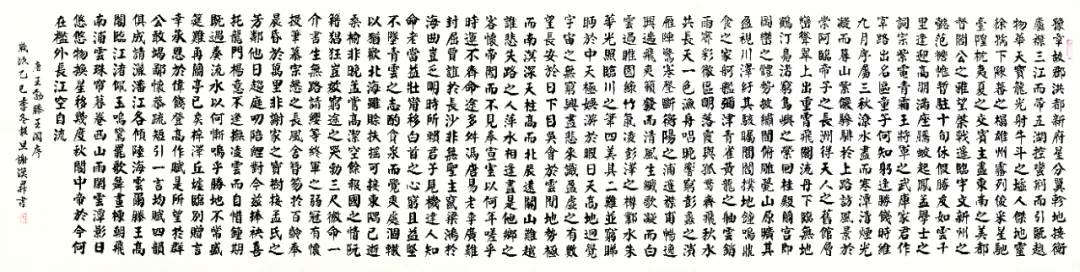 豫章故郡洪都新府星分翼軫地接衡
廬襟三江而帶五湖控蠻荊而引甌越
物華天寶龍光射牛斗之墟人傑地靈
徐孺下陳蕃之榻雄州霧列俊采星馳
臺隍枕夷夏之交賓主盡東南之美都
督閻公之雅望棨戟遙臨宇文新州之
懿範襜帷暫駐十旬休假勝友如雲千
里逢迎高朋滿座騰蛟起鳳孟學士之
詞宗紫電青霜王將軍之武庫家君作
宰路出名區童子何知躬逢勝餞時維
九月序屬三秋潦水盡而寒潭清煙光
凝而暮山紫儼驂騑於上路訪風景於
崇阿臨帝子之長洲得天人之舊館層
巒聳翠上出重霄飛閣流丹下臨無地
鶴汀鳧渚窮島嶼之縈回桂殿蘭宮即
岡巒之體勢披繡闥俯雕甍山原曠其
盈視川澤紆其駭矚閭閻撲地鐘鳴鼎
食之家舸艦彌津青雀黃龍之舳雲銷
雨霽彩徹區明落霞與孤鶩齊飛秋水
共長天一色漁舟唱晚響窮彭蠡之濱
雁陣驚寒聲斷衡陽之浦遙襟甫暢逸
興遄飛爽籟發而清風生纖歌凝而白
雲遏睢園綠竹氣凌彭澤之樽鄴水朱
華光照臨川之筆四美具二難并窮睇
眄於中天極娛游於暇日天高地迥覺
宇宙之無窮興盡悲來識盈虛之有數
望長安於日下目吳會於雲間地勢極
而南溟深天柱高而北辰遠關山難越
誰悲失路之人萍水相逢盡是他鄉之
客懷帝閽而不見奉宣室以何年嗟乎
時運不齊命途多舛馮唐易老李廣難
封屈賈誼於長沙非無聖主竄梁鴻於
海曲豈乏明時所賴君子見機達人知
命老當益壯寧移白首之心窮且益堅
不墜青雲之志酌貪泉而覺爽處涸轍
以猶歡北海雖賒扶搖可接東隅已逝
桑榆非晚孟嘗高潔空餘報國之情阮
籍猖狂豈效窮途之哭勃三尺微命一
介書生無路請纓等終軍之弱冠有懷
投筆慕宗愨之長風舍簪笏於百齡奉
晨昏於萬里非謝家之寶樹接孟氏之
芳鄰他日趨庭叨陪鯉對今茲捧袂喜
托龍門楊意不逢撫凌雲而自惜鍾期
既遇奏流水以何慚嗚乎勝地不常盛
筵難再蘭亭已矣梓澤丘墟臨別贈言
幸承恩於偉餞登高作賦是所望於群
公敢竭鄙懷恭疏短引一言均賦四韻
俱成請灑潘江各傾陸海雲爾滕王高
閣臨江渚佩玉鳴鸞罷歌舞畫棟朝飛
南浦雲珠簾暮卷西山雨閒雲潭影日
悠悠物換星移幾度秋閣中帝子今何
在檻外長江空自流
唐王勃滕王閣序
歲次乙巳季冬穀旦謝漢昇書